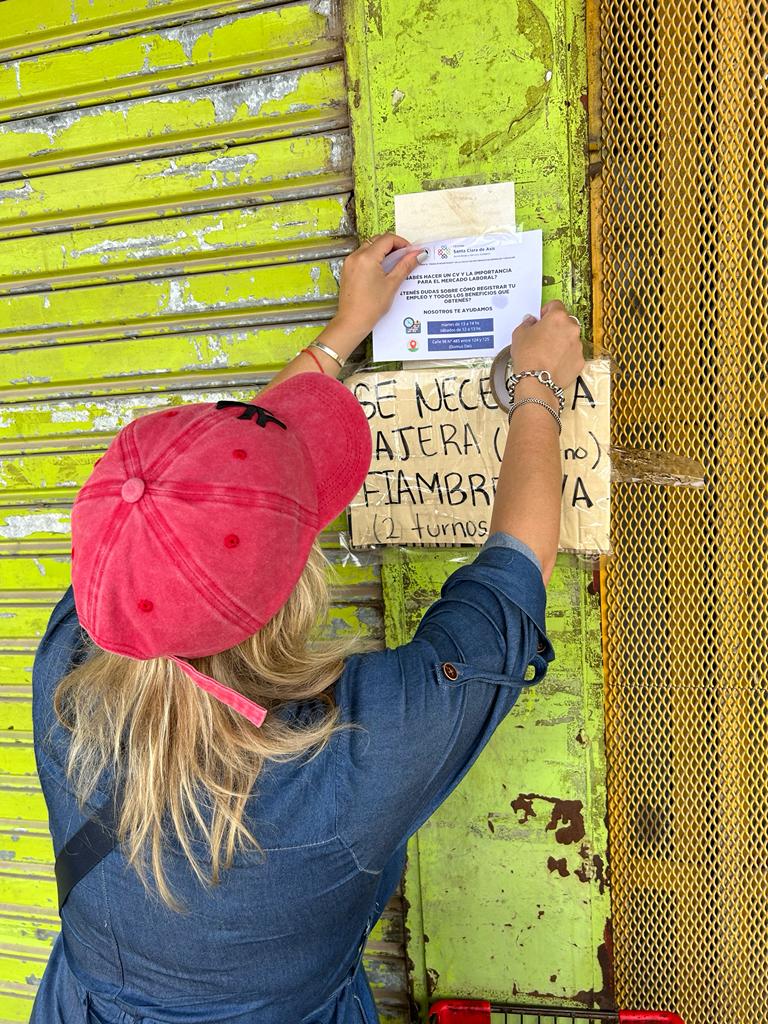 Santa Clara de Asís
SABÉS HACER UN CV Y LA IMPORTANCIA
PARA EL MERCADO LABORAL?
¿TENÉS DUDAS SOBRE CÓMO REGISTRAR TU
EMPLEO Y TODOS LOS BENEFICIOS QUE
OBTENÉS?
NOSOTROS TE AYUDAMOS
martes de 13 a 14 hs
sábados de 12 a 13 hs
Calle 96 N° 485 entre 124 y 125
(Domus Dei)
SE NECE A
AJERA ( no)
FIAMBRE A
(2 turnos